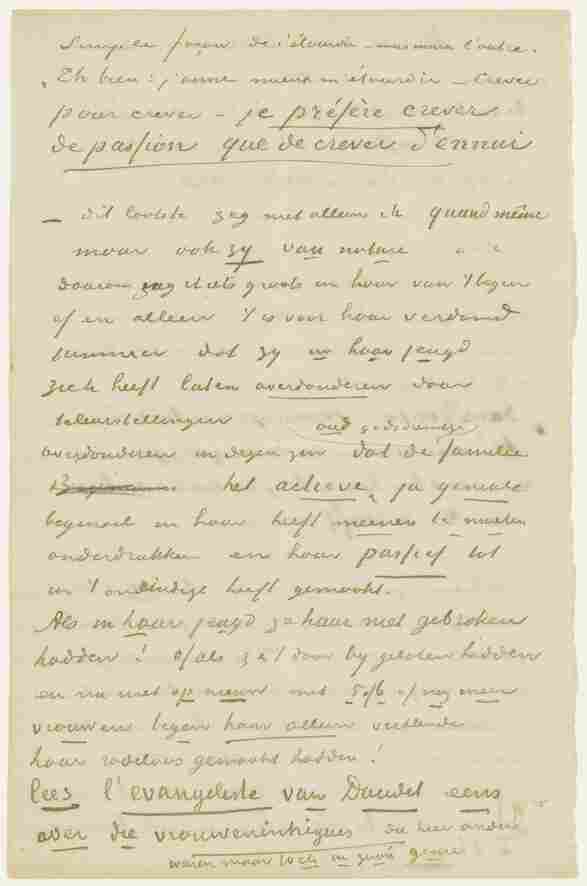 Simple façon de s'étourdir – mais moins l'autre.
Eh bien! j'aime mieux m'étourdir – Crever
pour crever – je préfère crever
de passion que de crever d'ennui
– dit laatste zeg niet alleen ik quand même
maar ook zy van nature
daarom zag ik iets groots in haar van 't begin
af en alleen 't is voor haar verdomd
jammer dat zy in haar jeugd
zich heeft laten overdonderen door
teleurstellingen
overdonderen in dezen zin dat de oud familie
het actieve, ja geniale
begonnen in haar heeft meenen te moeten
onderdrukken en haar passief tot
in 't oneindige heeft gemaakt.
Als in haar jeugd ze haar niet gebroken
hadden! of als ze 't daar by gelaten hadden
en nu niet op nieuw met 5 of 6 of nog meer
vrouwen tegen haar alleen vechtende
haar radeloos gemaakt hadden!
Lees l'evangeliste van Daudet eens
over die vrouwenintrigues die hier anders
waren maar toch in zyn genre